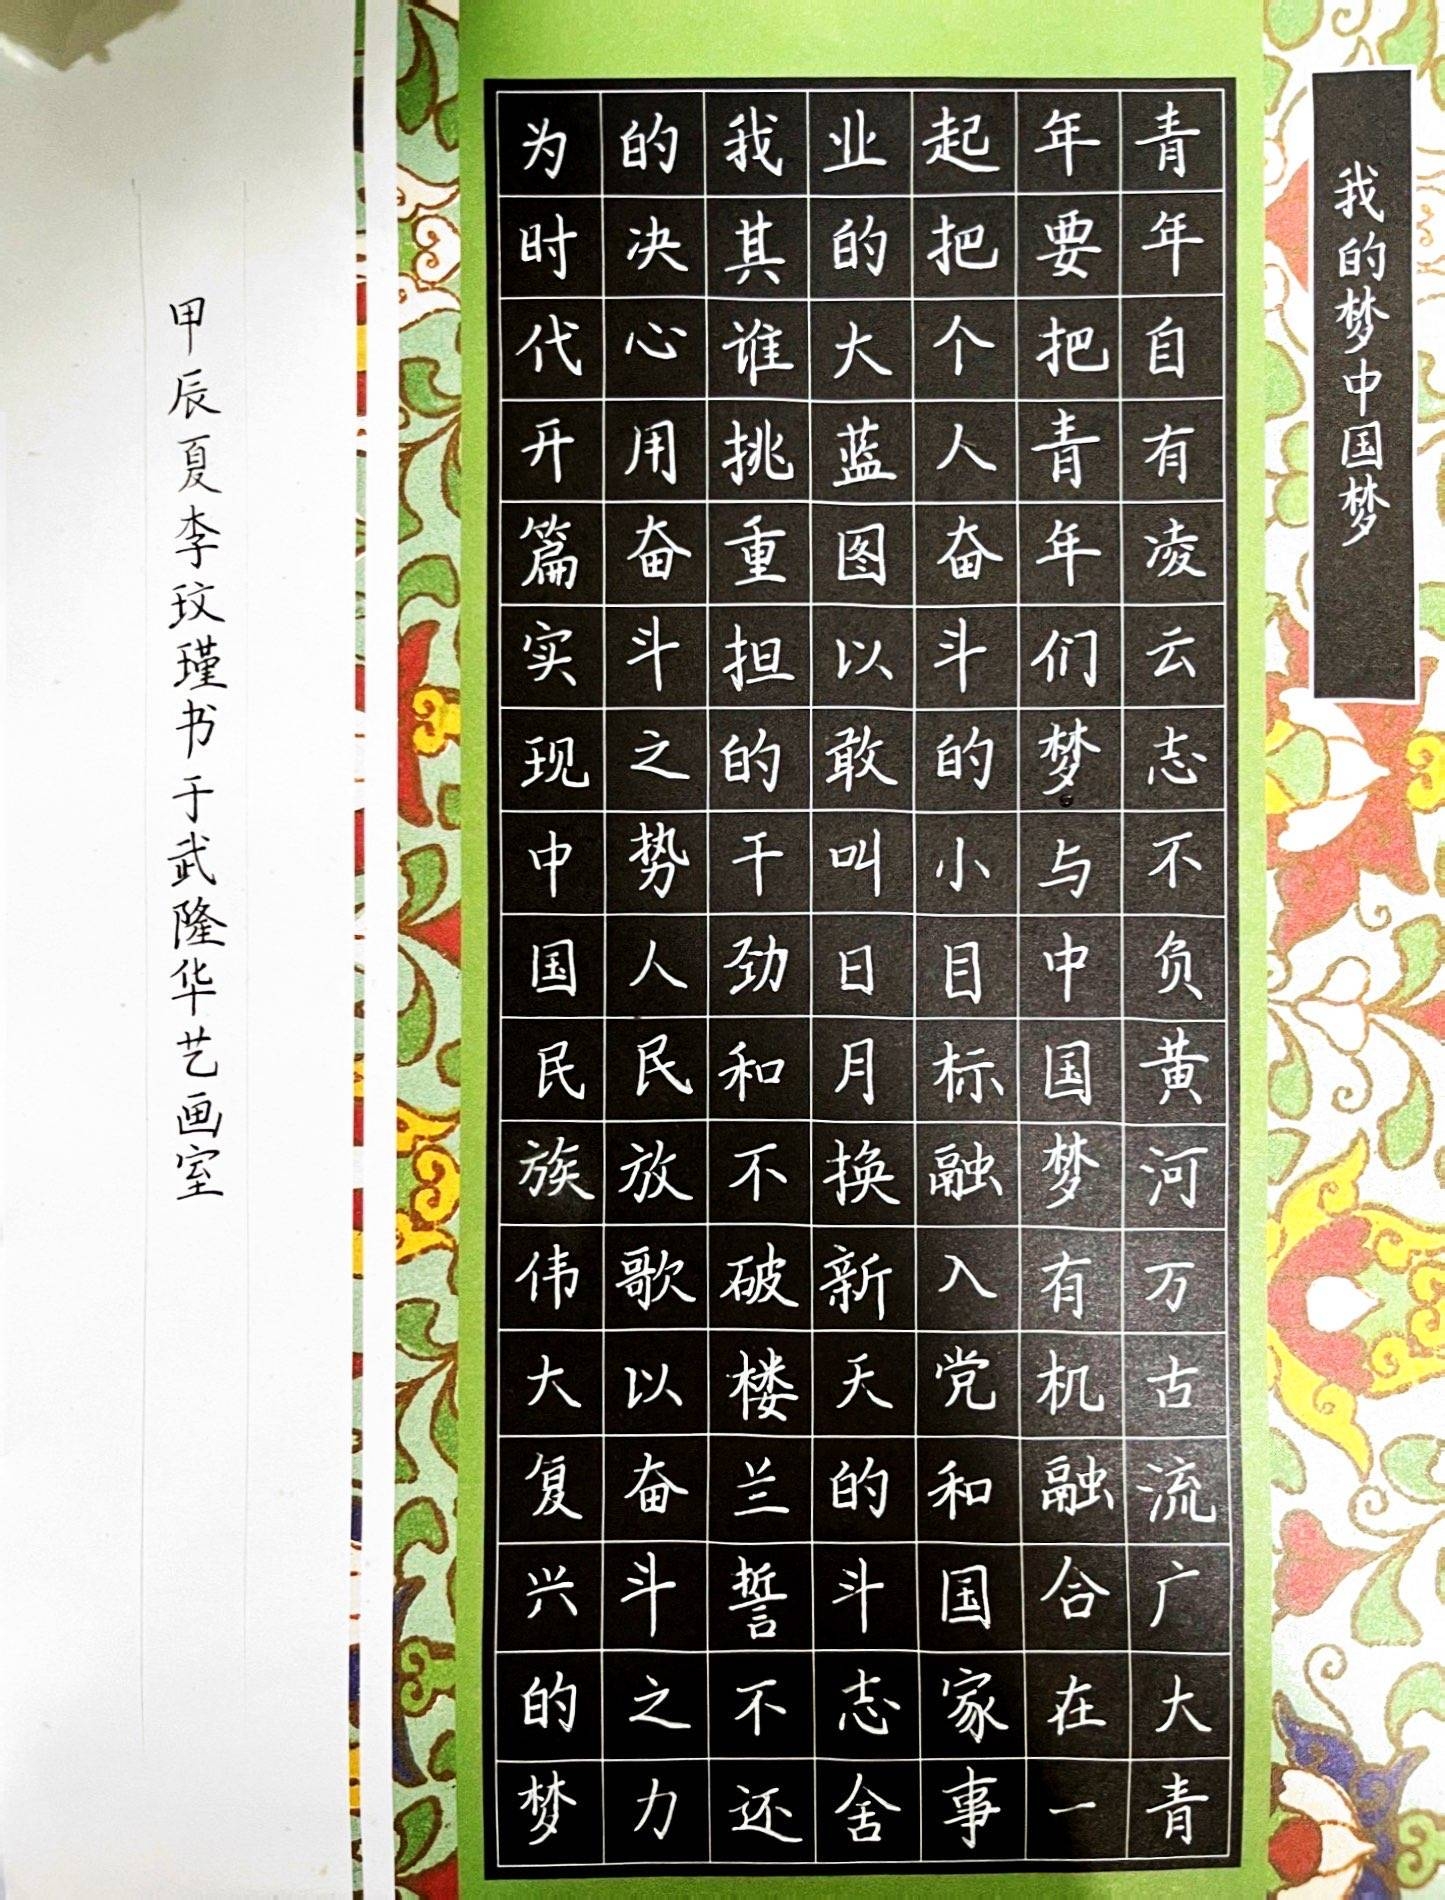 我的梦中国梦
青年自有凌云志不负黄河万古流广大青
年要把青年们梦与中国梦有机融合在一
起把个人奋斗的小目标融入党和国家事
业的大蓝图以敢叫日月换新天的斗志舍
我其谁挑重担的干劲和不破楼兰誓不还
的决心用奋斗之势人民放歌以奋斗之力
为时代开篇实现中国民族伟大复兴的梦
甲辰夏李玟瑾书于武隆华艺画室